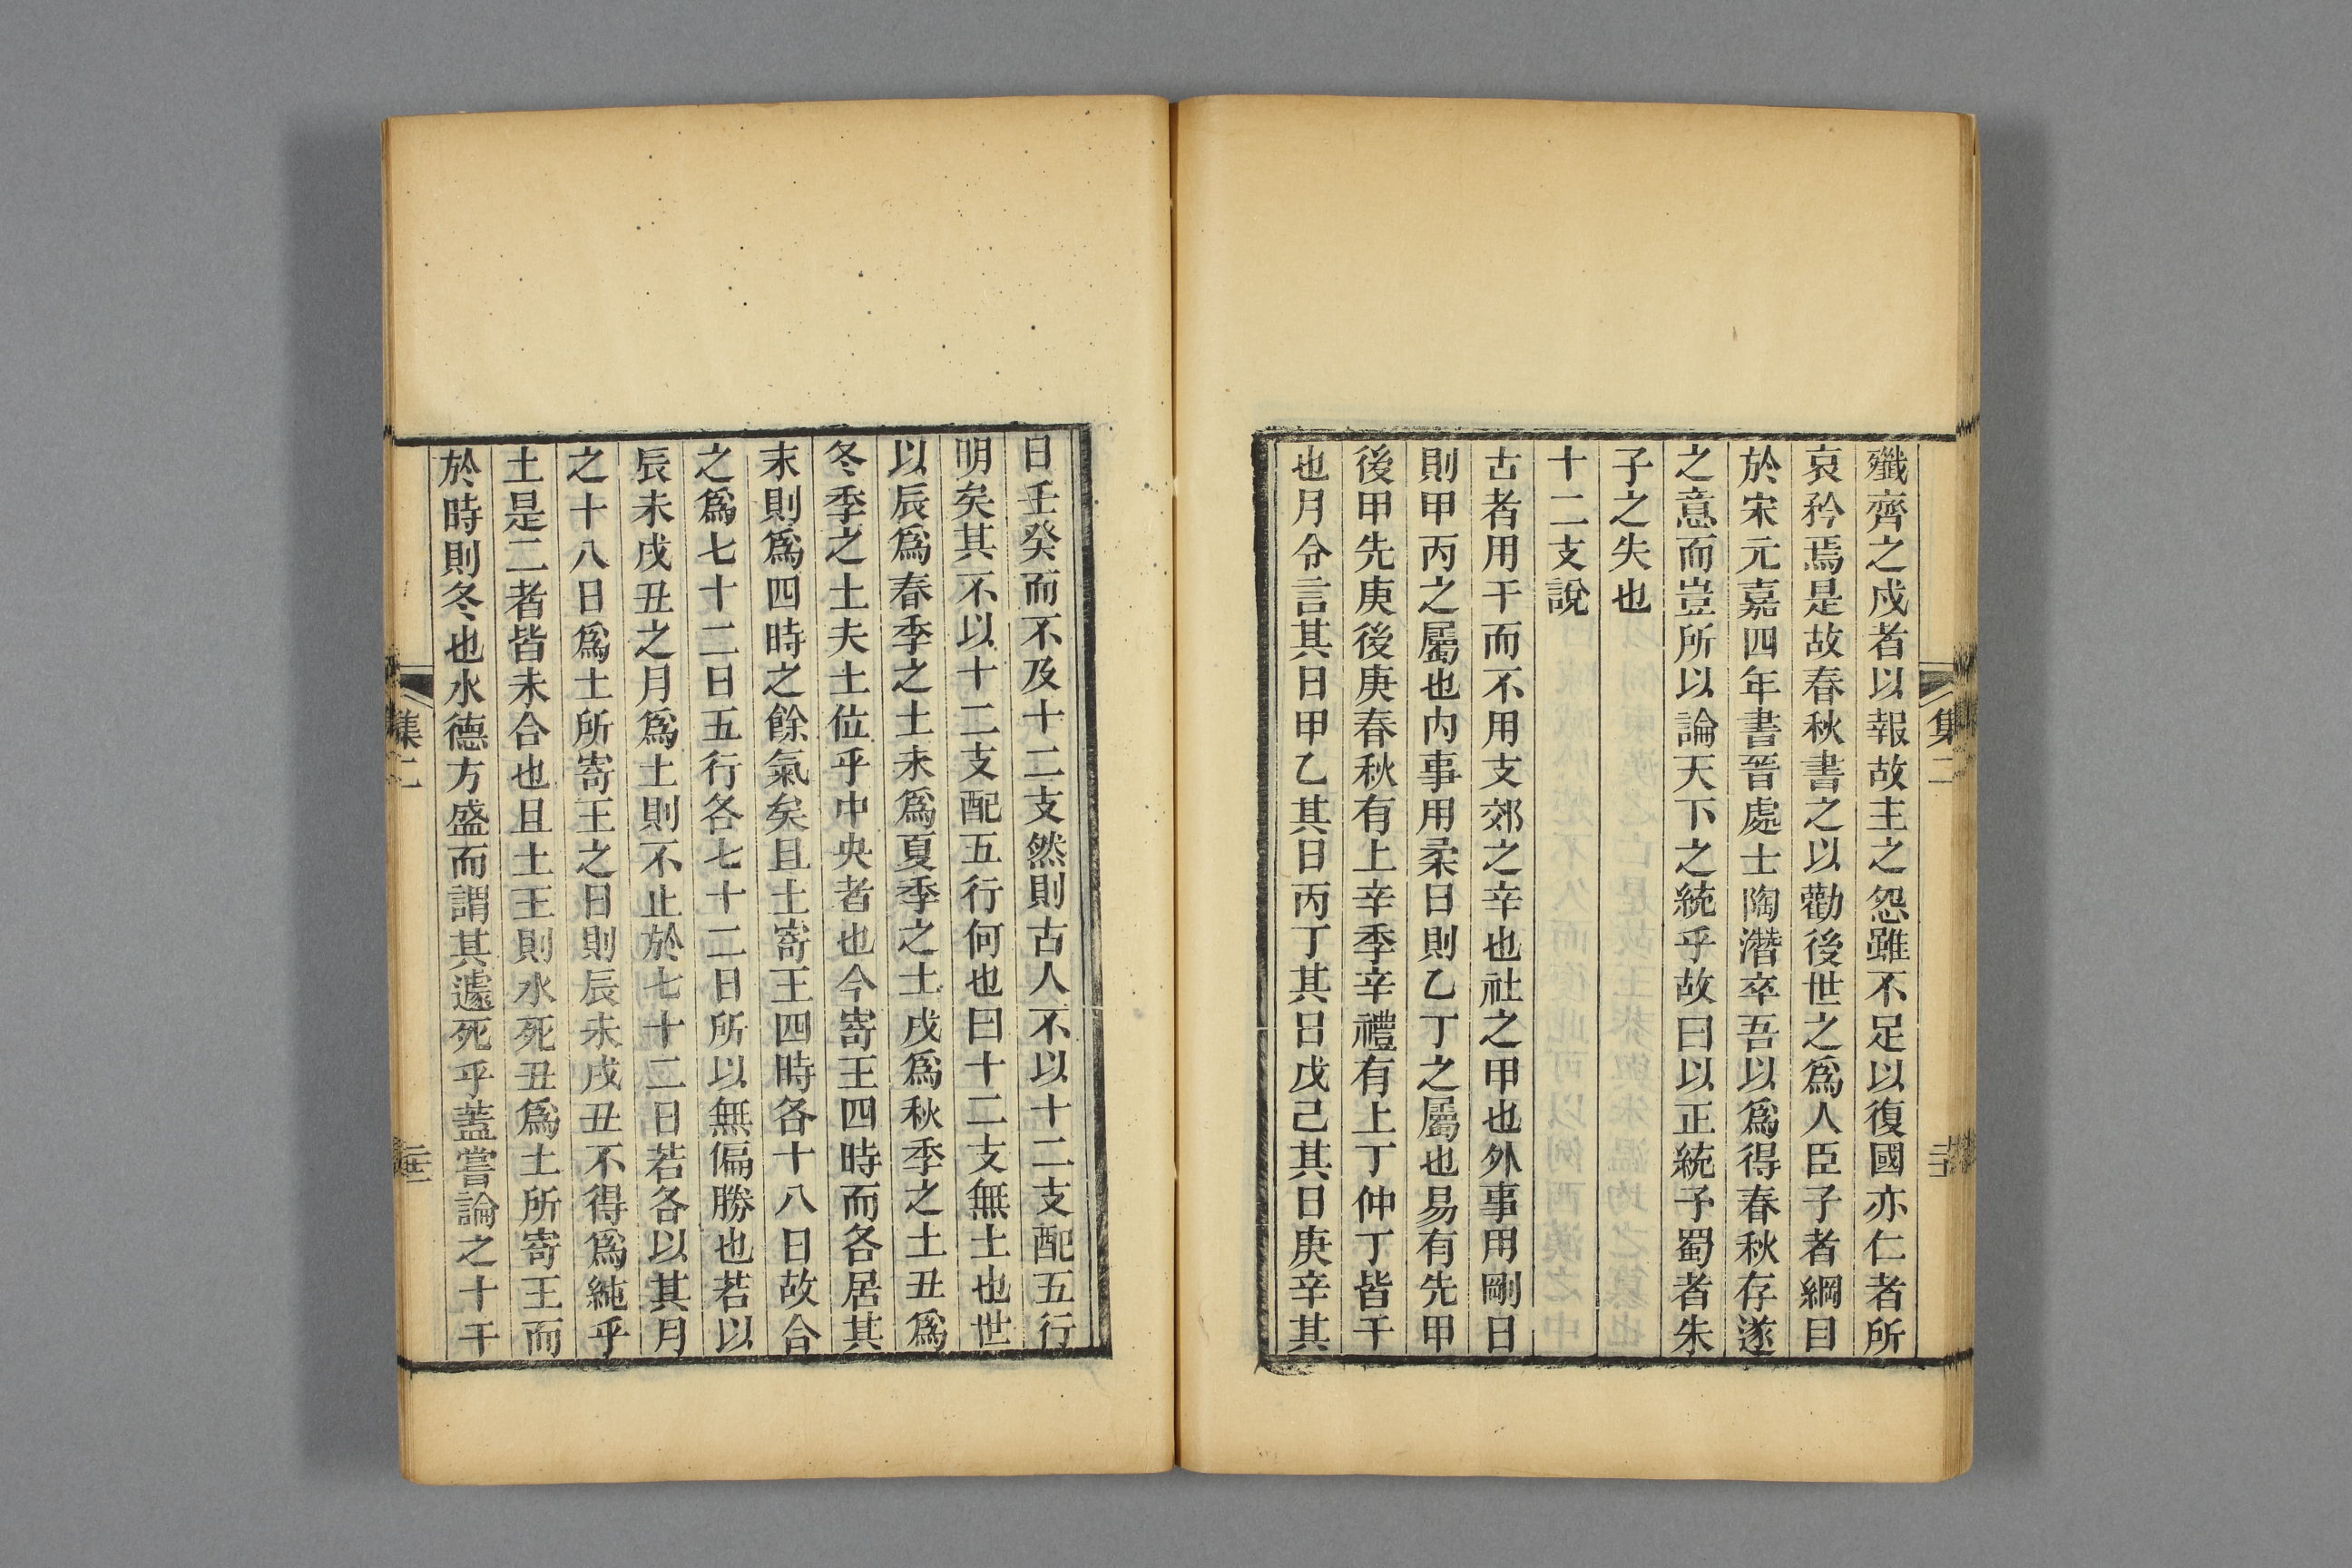 殲齊之戍者以報故主之怨雖不足以復國亦仁者所
哀矜焉是故春秋書之以勸後世之爲人臣子者綱目
於宋元嘉四年書晉處士陶潛卒吾以爲得春秋存遂
之意而豈所以論天下之統乎故曰以正統予蜀者朱
子之失也
十二支說
古者用干而不用支郊之辛也社之甲也外事用剛日
則甲丙之屬也內事用柔日則乙丁之屬也易有先甲
後甲先庚後庚春秋有上辛季辛禮有上丁仲丁皆干
也月令言其日甲乙其日丙丁其日戊己其日庚辛其
日壬癸而不及十二支然則古人不以十二支配五行
明矣其不以十二支配五行何也曰十二支無土也世
以辰爲春季之土未爲夏季之土戌爲秋季之土丑爲
冬季之土夫土位乎中央者也今寄王四時而各居其
末則爲四時之餘氣矣且土寄王四時各十八日故合
之爲七十二日五行各七十二日所以無偏勝也若以
辰未戌丑之月爲土則不止於七十二日若各以其月
之十八日爲土所寄王之日則辰未戌丑不得爲純乎
土是二者皆未合也且土王則水死丑爲土所寄王而
於時則冬也水德方盛而謂其遽死乎蓋嘗論之十干
集二
集二